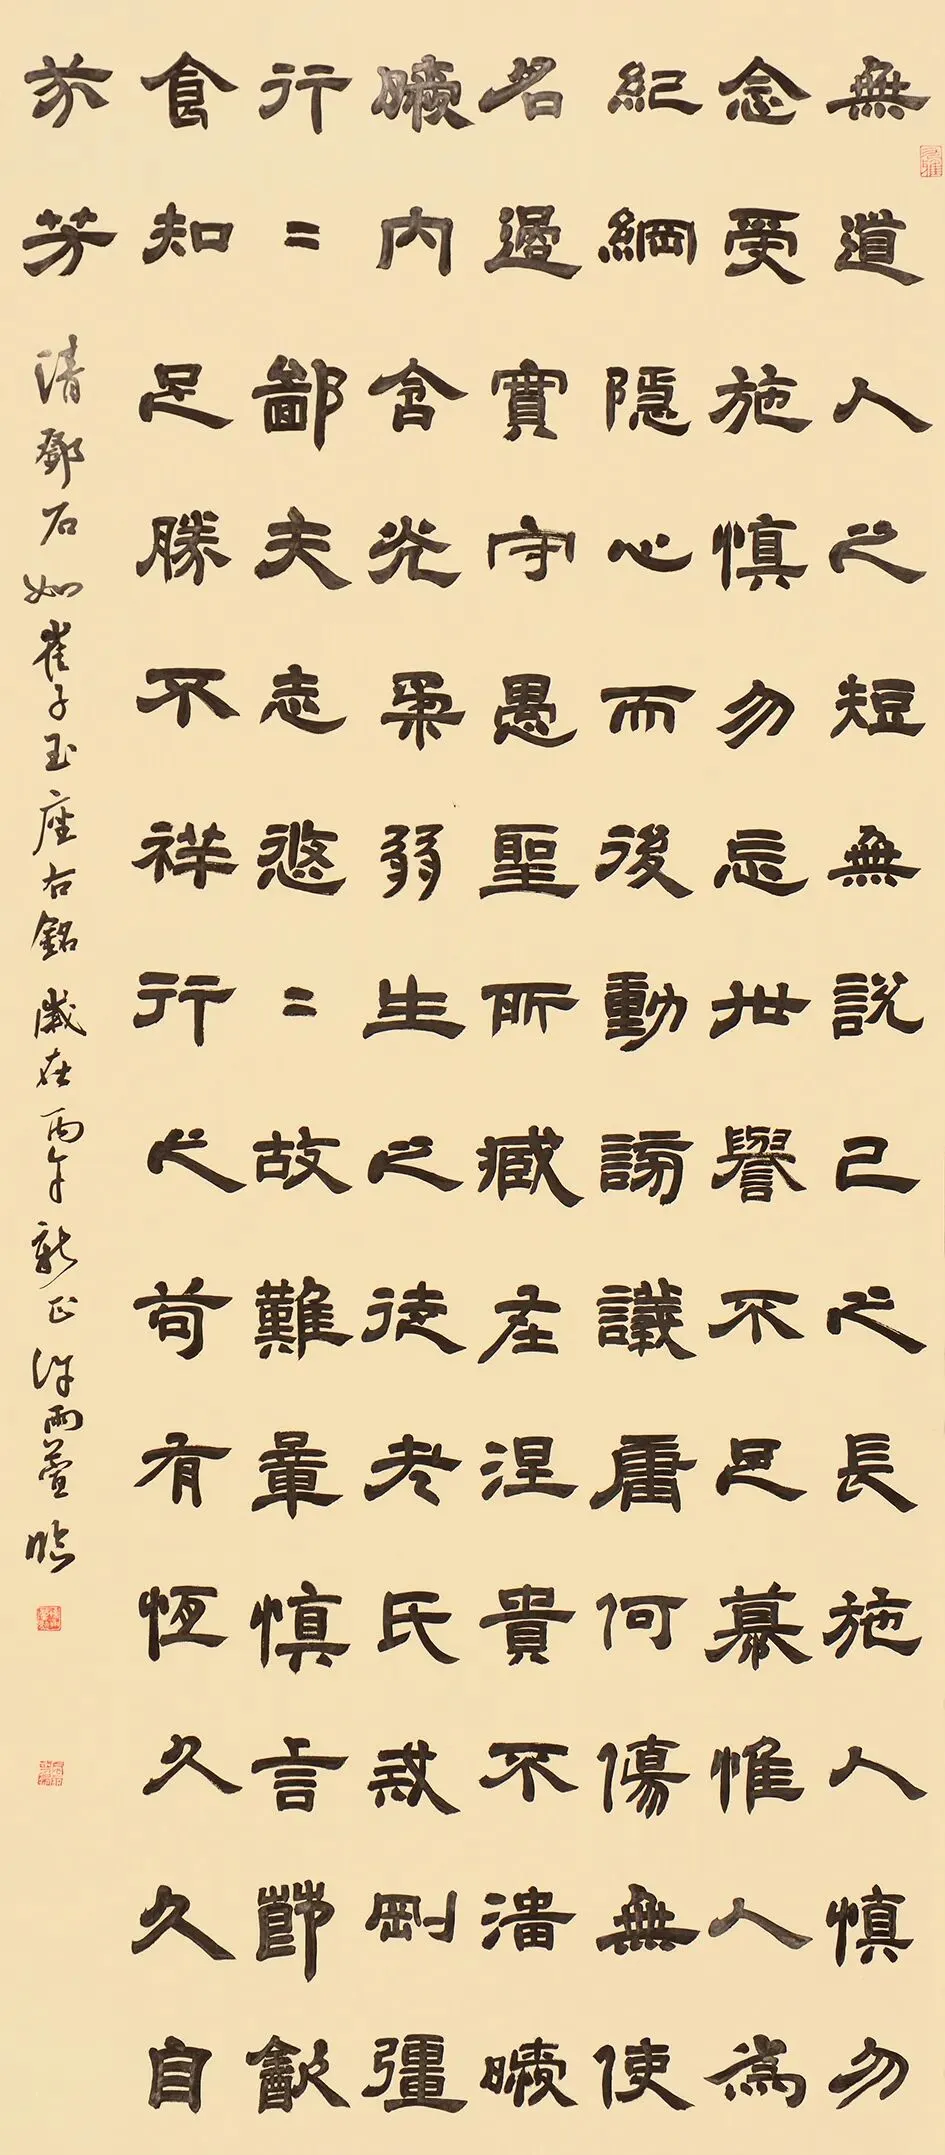 無道人之短無說己之長施人慎勿
念受施慎勿忘世譽不足慕惟人為
紀綱隱心而後動謗議庸何傷無使
名過實守愚聖所臧在涅貴不淄曖
曖內含光柔弱生之徒老氏戒剛彊
行〻鄙夫志悠〻故難量慎言節飲
食知足勝不祥行之苟有恆久久自
芬芳 清鄧石如崔子玉座右銘歲在丙午新正許雨萱臨